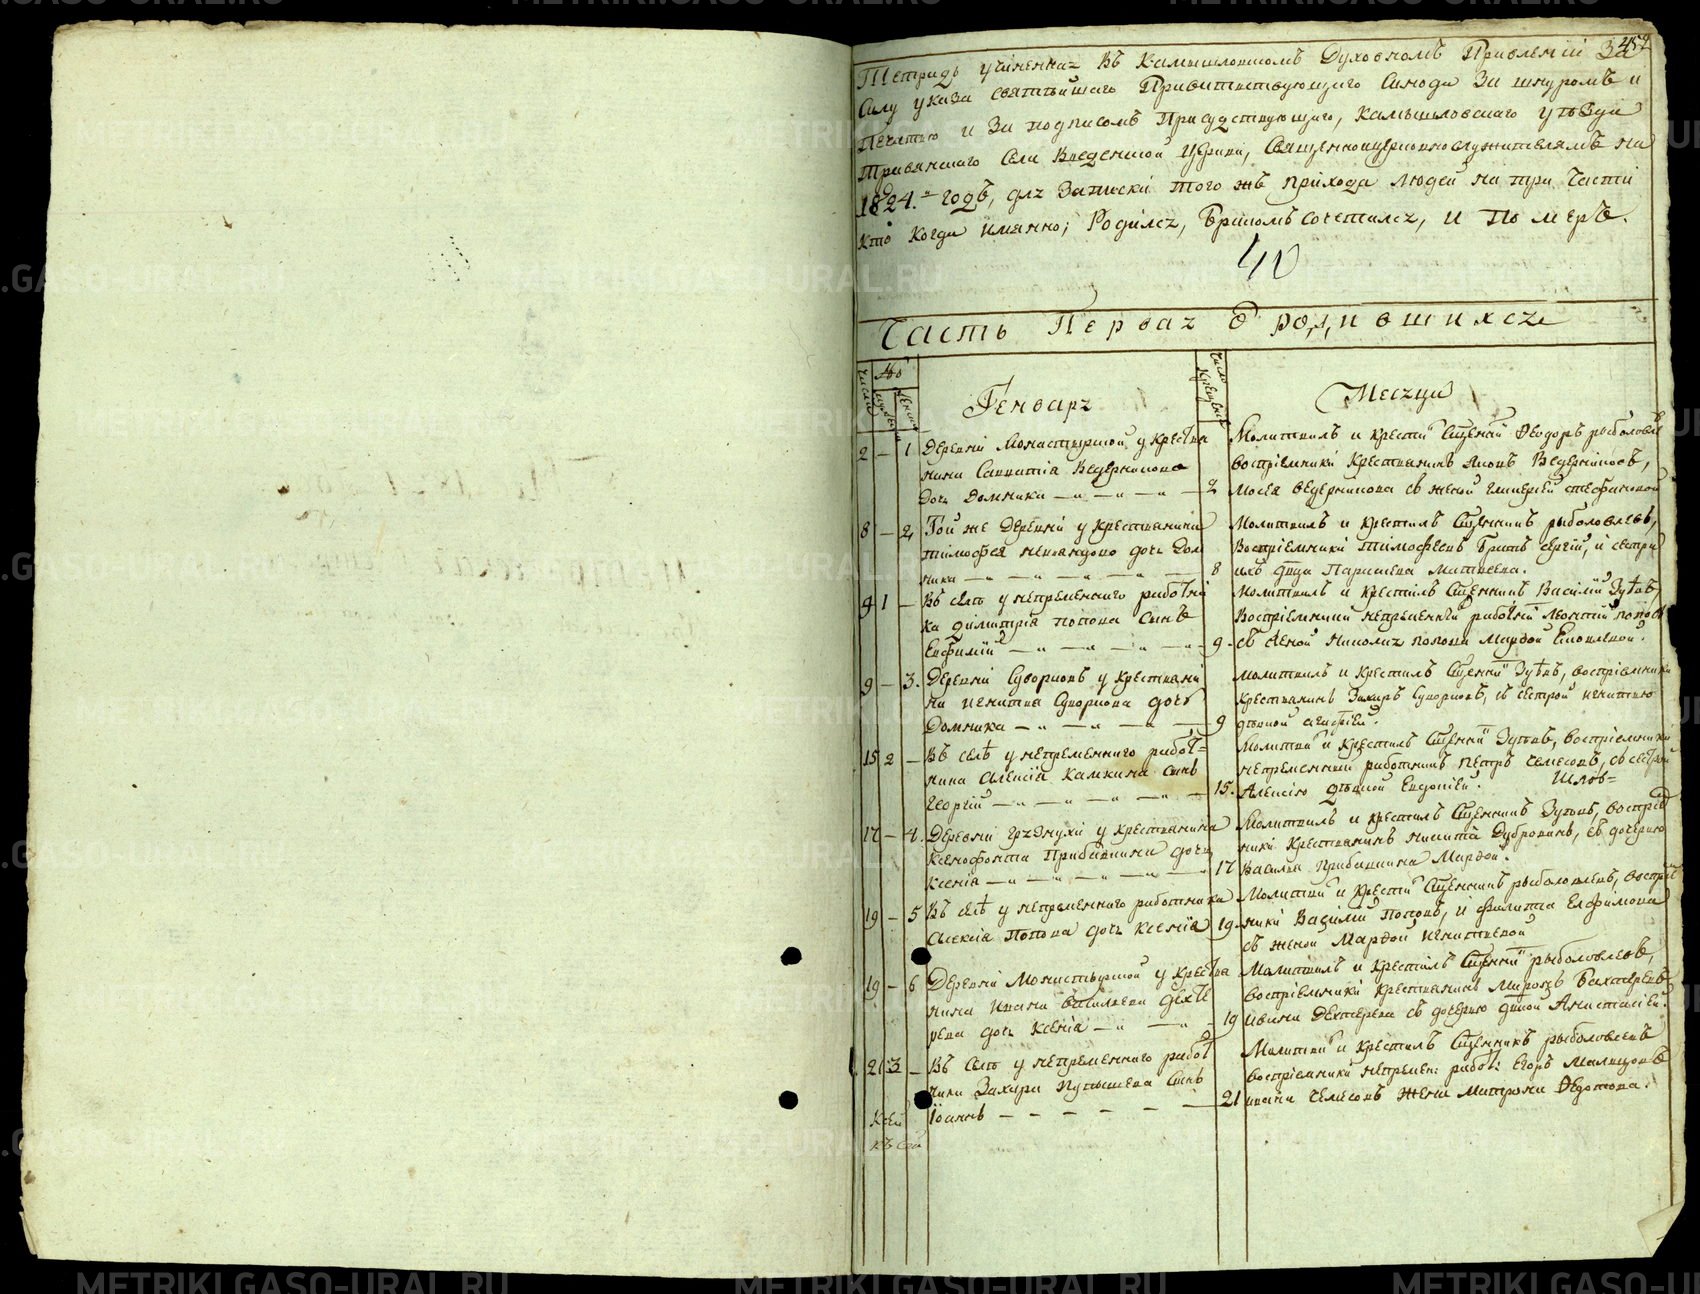 452
Тетрадь учиненная Въ Камышловскомъ Духовномъ Правленіи За
Силу указа Святѣйшаго Правительствующаго Синода За шнуромъ и
Печатью и За подписомъ Присудствующаго, Камышловскаго уѣзда
Травянскаго Села Введенской Церкви, Священноцерковнослужителямъ на
1824.й годъ, для Записки того жъ прихода людей на три Части
кто когда имянно; Родился, Бракомъ сочетался, и Померъ.
Часть Первая о родившихся
Число
№
мужеска
женска
Генварь
Число Крещенія
Месяца
2 — 1 Деревни Монастырской у крестья
нина Савватіа Ведерникова
дочь Домника 2
Молитвилъ и крести Сщенни Ѳеодоръ рыболовлев
воспріемники Крестьянинъ Яковъ Ведерниковъ,
Мосея ведерникова съ женой Гликеріей стефановой
8 — 2 Той же Деревни у крестьянина
тимоѳея дочь Дом
ника 8
Молитвилъ и крестилъ Сщенникъ рыболовлевъ,
Воспріемники тимоѳеевъ Братъ Сергій, и сестра
ихъ двца Парасковѣа Матвеева.
9 1 — Въ селѣ у непременнаго работни
ка димитріа попова Сынъ
Евфимій 9
молитвилъ и крестилъ Сщенникъ Василій Зубовъ,
Воспріемники непременный работникъ Леонтій попов
съ женой Николая попова Марфой Емонлевой.
9 — 3. Деревни Суворковъ у крестьяни
на игнатіа Суворкова дочь
Домника 9
молитвилъ и крестилъ Сщенни Зубовъ, воспріемники
крестьянинъ Захаръ Суворковъ, съ сестрой игнатію
дѣвкой агафіей.
15 2 — Въ селѣ у непременнаго работ=
ника Алексіа Камкина сынъ
Георгій 15.
Молитви и крестилъ Сщенни Зубовъ, воспріемники
непременный работникъ петръ Чемесовъ, съ сестрой
Алексію дѣвкой Евдокіей.
17 — 4. Деревни Грязнухи у крестьянина
Ксенофонта Прибавкина дочь
Ксеніа 17
Молитвилъ и крестилъ Сщенникъ Зубовъ, воспріем
ники крестьянинъ никита Дубровинъ, съ дочерью
Василья Прибавкина Марфой.
19 — 5 Въ селѣ у непременнаго работника
Алексіа Попова дочь Ксеніа 19.
Молитви и крести Сщенникъ рыболовлевъ, воспріем
ники Василій Поповъ, и филипа Ефимова
съ женой Марфой игнатьевой
19 — 6 Деревни Монастырской у крестья
нина Ивана Васильева Дехте
рева дочь Ксеніа 19
Молитвилъ и крестилъ Сщенни рыболовлевъ,
воспріемники крестьянинъ Миронъ Бахтеревъ
ивана Дехтерева съ дочерью двкой Анастасіей.
21 3 — Въ селѣ у непременнаго работ
ника Захара Пупышева Сынъ
Іоаннъ 21
Молитви и крестилъ Сщенникъ рыболовлевъ
воспріемники непремен: работ: Егоръ Малицовъ
ивана Чемесовъ Жена Матрона Ѳедотова.